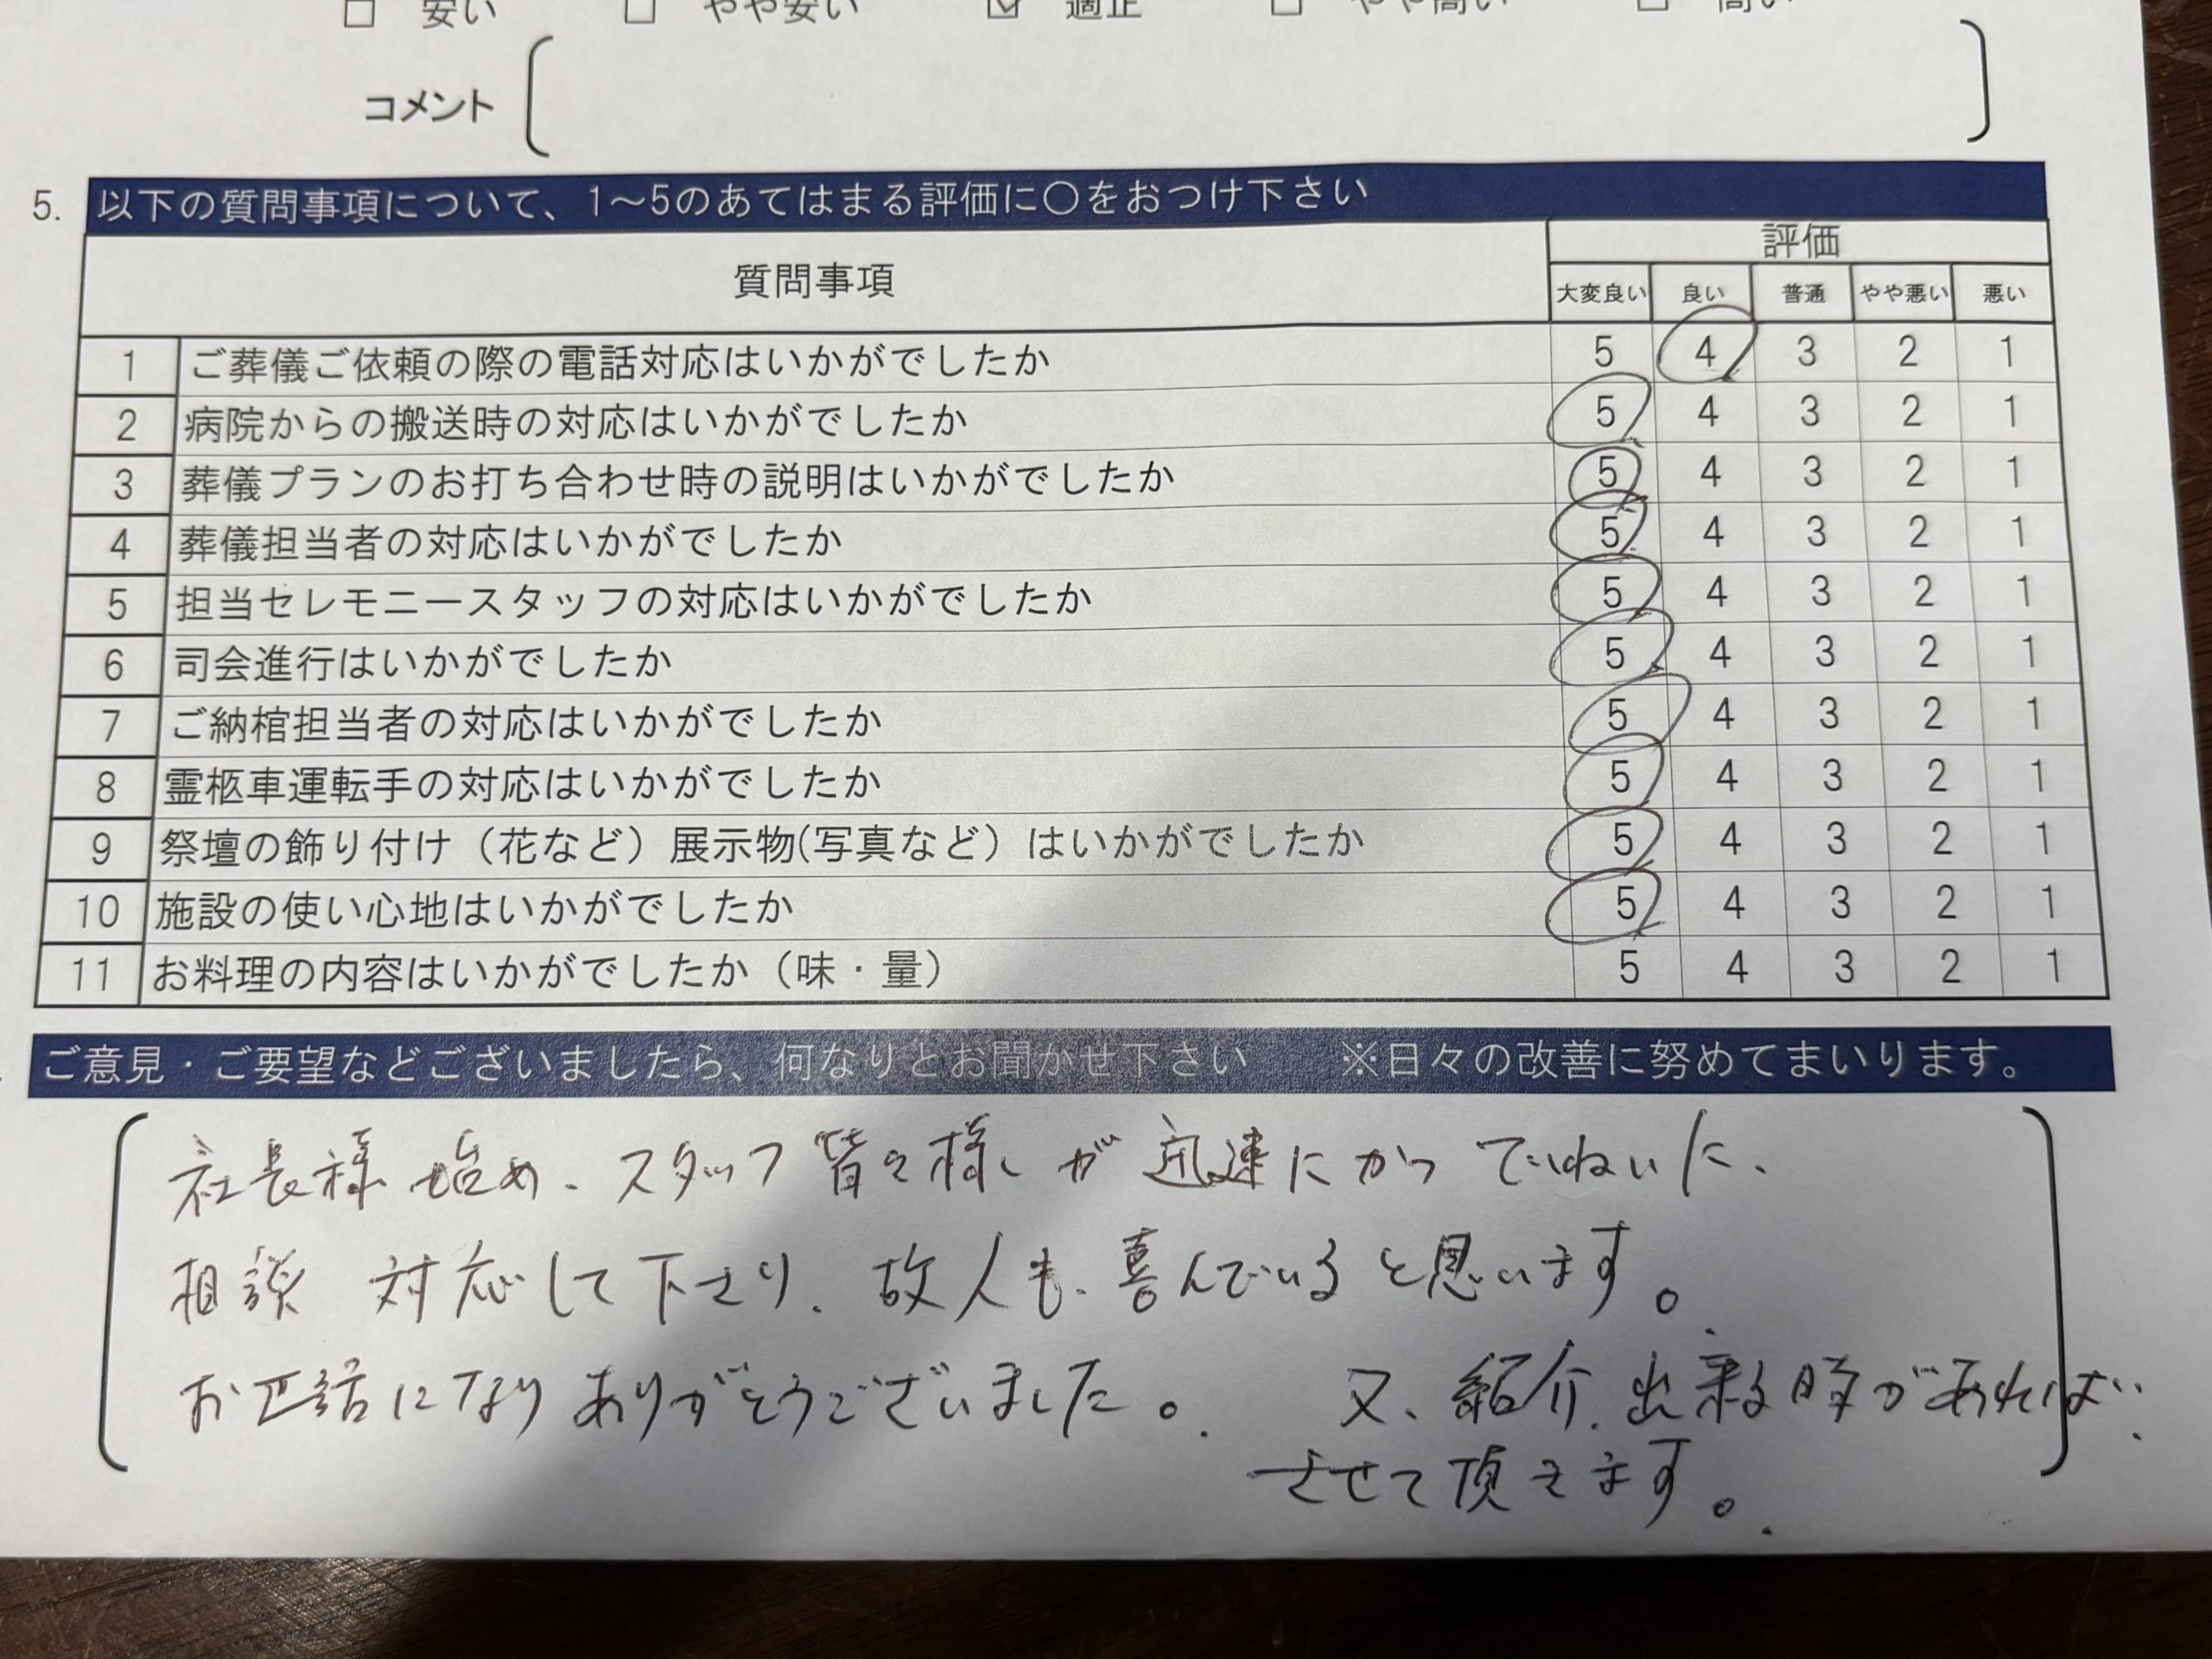 □ 安い □ やや安い ☑ 適正 □ やや高い □ 高い
コメント
5. 以下の質問事項について、1～5のあてはまる評価に〇をおつけ下さい
質問事項 評価
大変良い 良い 普通 やや悪い 悪い
1 ご葬儀ご依頼の際の電話対応はいかがでしたか 5 4 3 2 1
2 病院からの搬送時の対応はいかがでしたか 5 4 3 2 1
3 葬儀プランのお打ち合わせ時の説明はいかがでしたか 5 4 3 2 1
4 葬儀担当者の対応はいかがでしたか 5 4 3 2 1
5 担当セレモニースタッフの対応はいかがでしたか 5 4 3 2 1
6 司会進行はいかがでしたか 5 4 3 2 1
7 ご納棺担当者の対応はいかがでしたか 5 4 3 2 1
8 霊柩車運転手の対応はいかがでしたか 5 4 3 2 1
9 祭壇の飾り付け（花など）展示物(写真など）はいかがでしたか 5 4 3 2 1
10 施設の使い心地はいかがでしたか 5 4 3 2 1
11 お料理の内容はいかがでしたか（味・量） 5 4 3 2 1
ご意見・ご要望などございましたら、何なりとお聞かせ下さい ※日々の改善に努めてまいります。
社長様始め、スタッフ皆々様が迅速にかつていねいに、
相談 対応して下さり、故人も、喜んでいると思います。
お世話になりありがとうございました。 又、紹介、出来る時があれば、
させて頂きます。